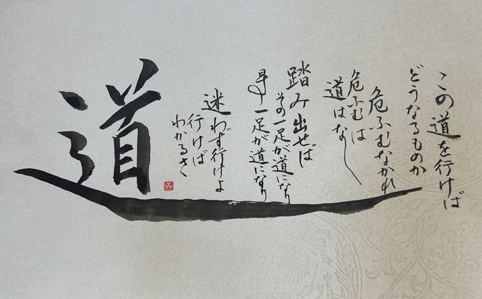 この道を行けば
どうなるものか
危ふむなかれ
危ふむは
道はなし
踏み出せば
その一足が道になり
一足が道になり
迷わず行けよ
行けば
わかるさ
道